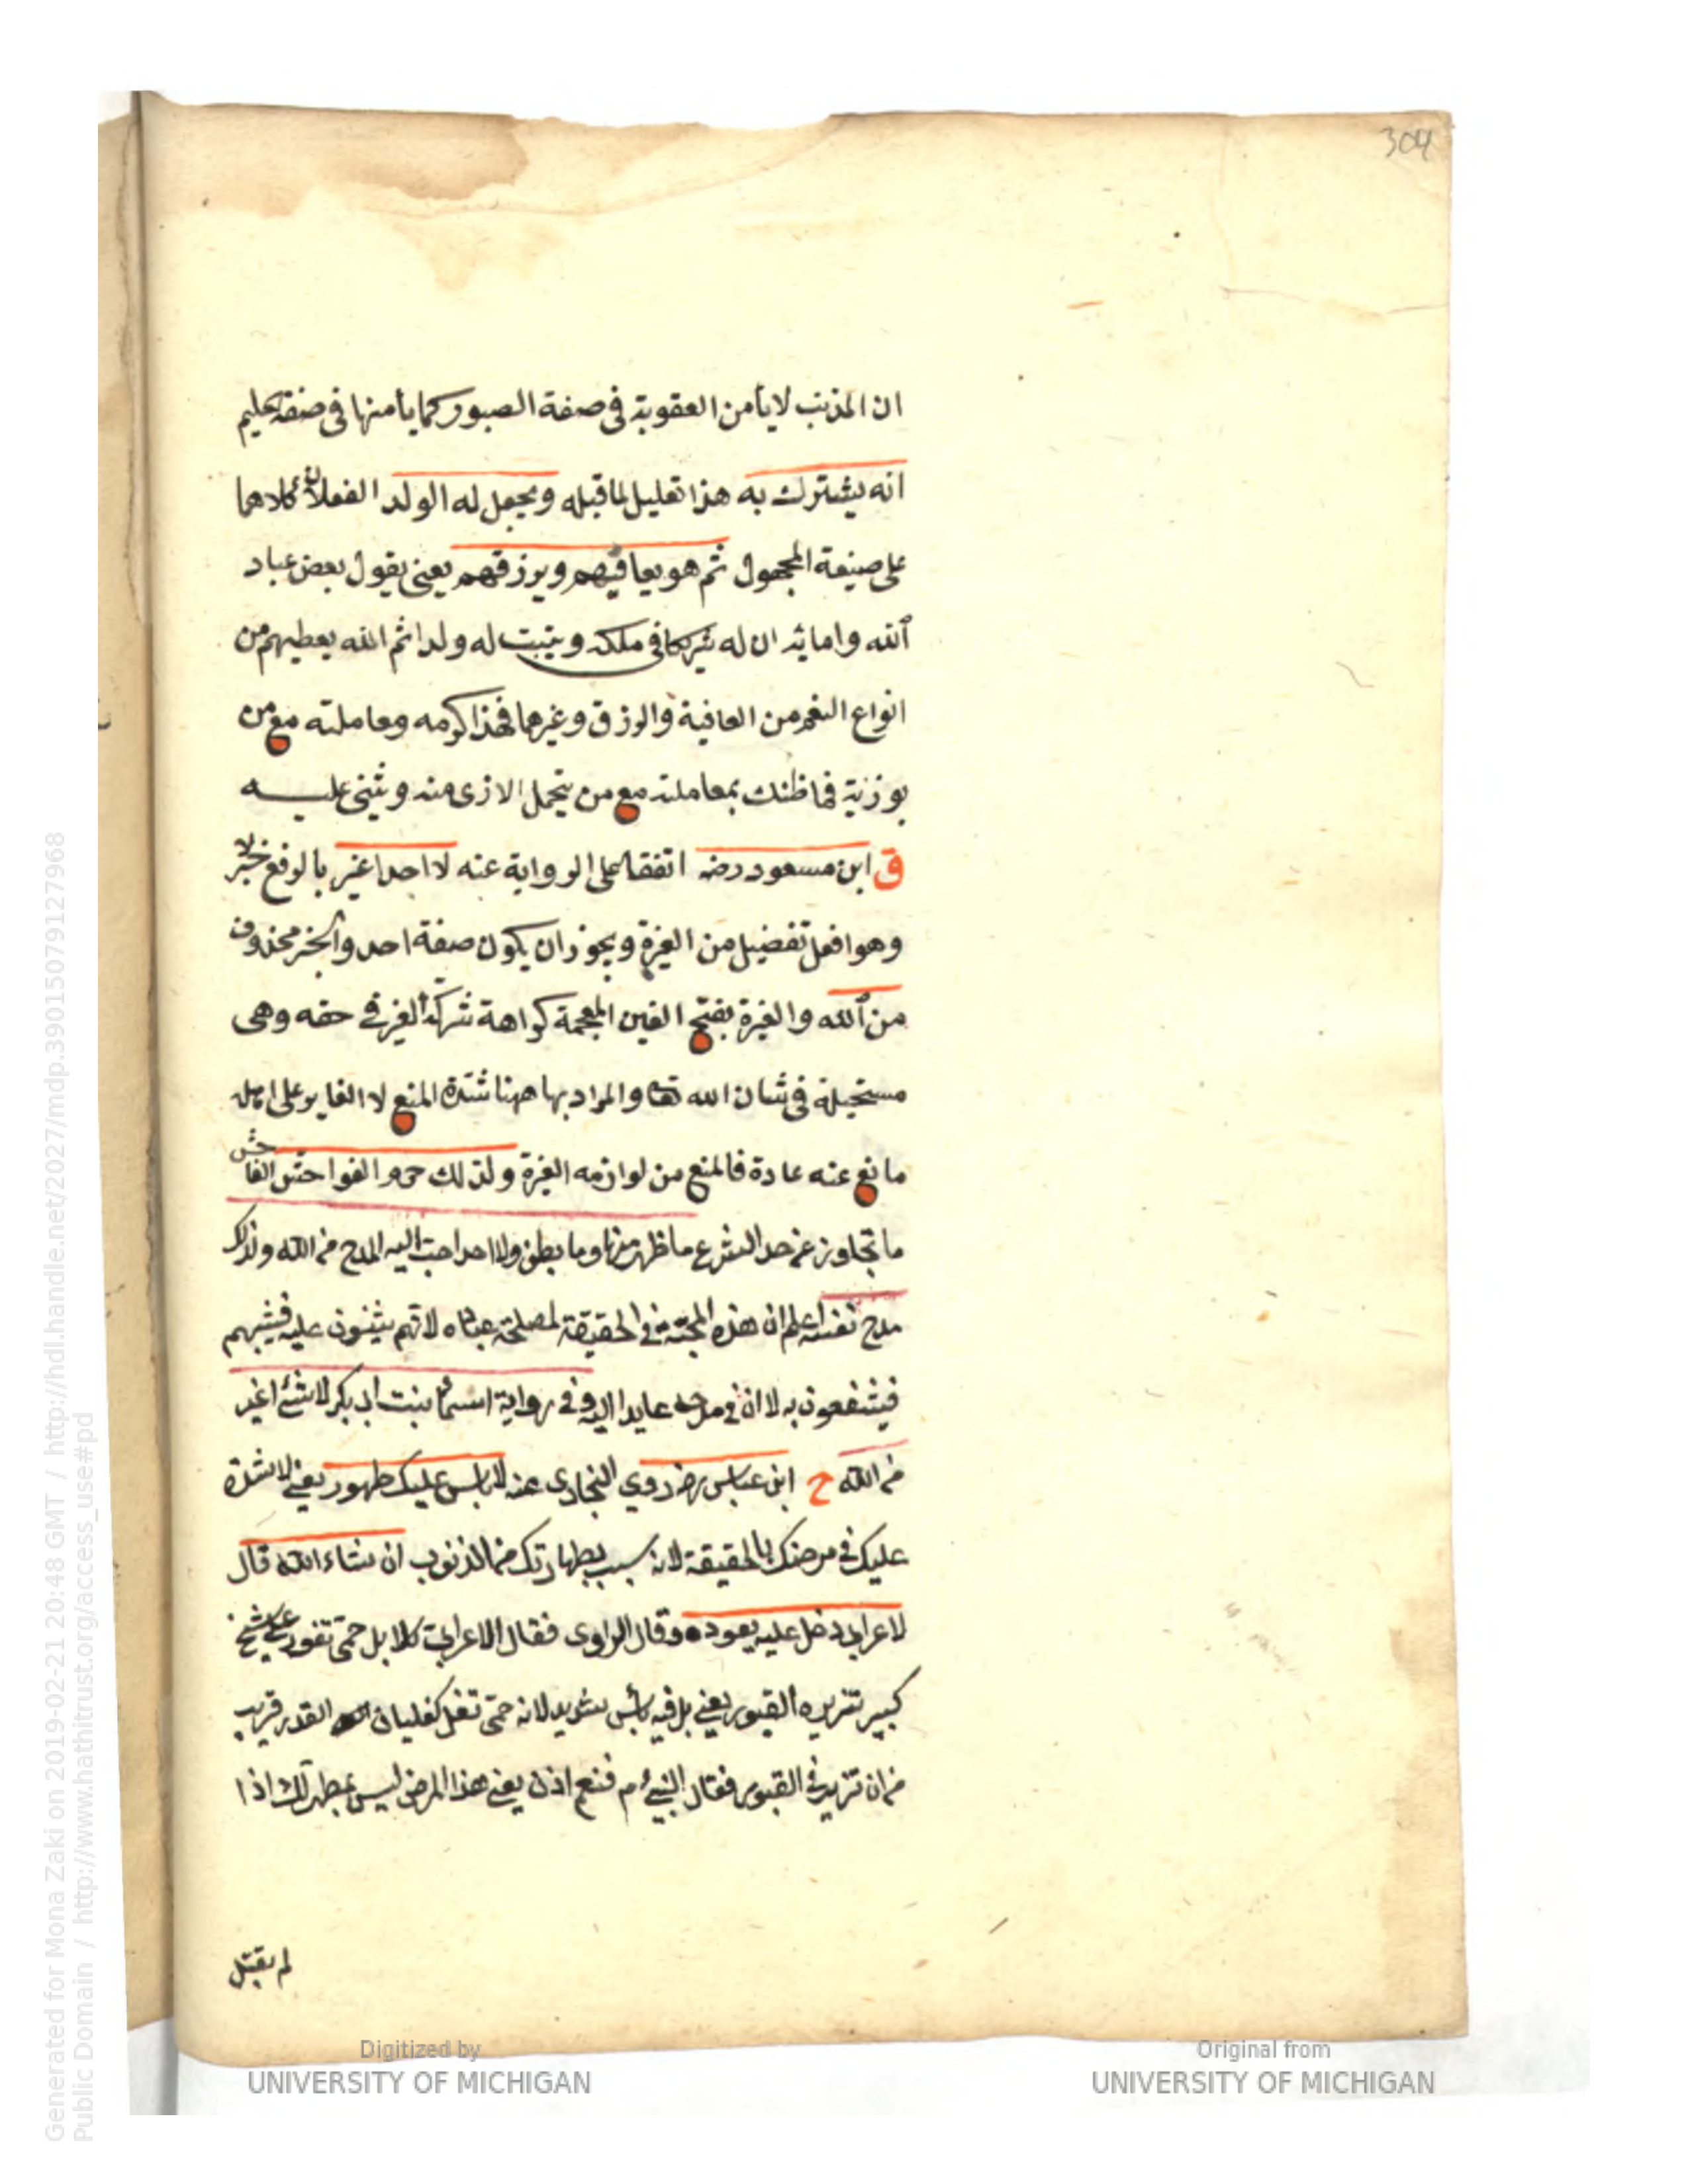 304
ان المذنب لا يأمن العقوبة في صفة الصبور كما يأمنها في صفة الحليم
انه يشترك به هذا تعليل لما قبله ويجعل له الولد الفعلان كلاهما
على صيغة المجهول ثم هو يعافيهم ويرزقهم يعني يقول بعض عباد
الله وامائه ان له شريكا في ملكه ويثبت له ولدا ثم الله يعطيهم من
انواع النعم من العافية والرزق وغيرها فهذا كرمه ومعاملته مع من
يوذيه فما ظنك بمعاملته مع من يتحمل الاذى منه ويثني عليه
ق ابن مسعود رضه اتفقا على الرواية عنه لا احد اغير بالرفع خبر لا
وهو افعل تفضيل من الغيرة ويجوز ان يكون صفة احد والخبر محذوف
من الله والغيرة بفتح الغين المعجمة كراهة شركة الغير في حقه وهي
مستحيلة في شان الله تعا والمراد بها ههنا شدة المنع لا الغاير على اهله
مانع عنه عادة فالمنع من لوازمه الغيرة ولذلك حرم الفواحش الفاحش
ما تجاوز عن حد الشرع ما ظهر منها وما بطن ولا احد احب اليه المدح من الله ولذلك
مدح نفسه اعلم ان هذه المحبة في الحقيقة لمصلحة عباده لانهم يثنون عليه فيثيبهم
فينتفعون به لا ان في مدحه عايدا اليه وفي رواية اسما بنت ابي بكر لا شئ اغير
من الله خ ابن عباس رضه روي البخاري عنه لا باس عليك طهور يعني لا شدة
عليك في مرضك بالحقيقة لانه سبب بطهارتك من الذنوب ان شاء الله قال
لاعرابي دخل عليه يعوده وقال الراوي فقال الاعرابي كلا بل حمى تفور على شيخ
كبير تزيره القبور يعني بل فيه بأس شديد لانه حمى تغلى كغليان القدر قريب
من ان تزيره القبور فقال النبي ءم فنعم اذن يعني هذا المرض ليس بمطهر لك اذا
لم تقبل
Generated for Mona Zaki on 2019-02-21 20:48 GMT / http://hdl.handle.net/2027/mdp.39015079127968
Public Domain / http://www.hathitrust.org/access_use#pd
Digitized by
UNIVERSITY OF MICHIGAN
Original from
UNIVERSITY OF MICHIGAN